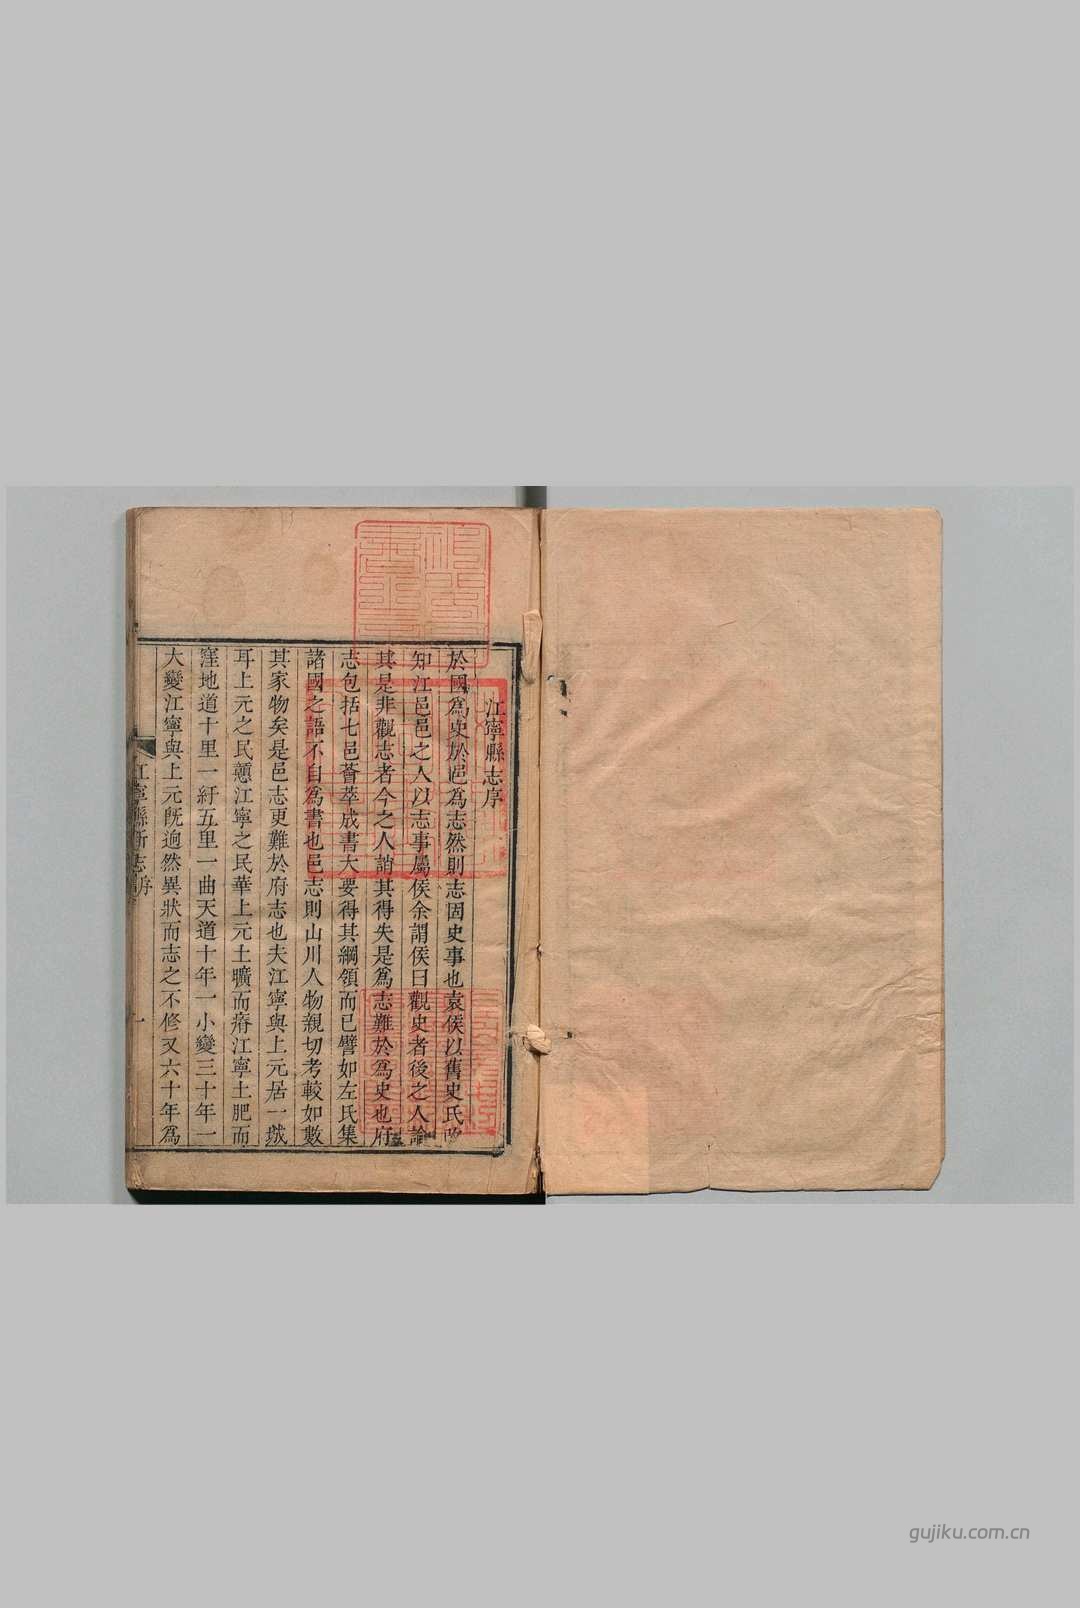 江寧縣志序
於國爲史於邑爲志然則志固史事也袁侯以舊史氏
知江邑邑之人以志事屬侯余謂侯曰觀史者後之人論
其是非觀志者今之人誚其得失是爲志難於爲史也府
志包括七邑薈萃成書大要得其綱領而已譬如左氏集
諸國之語不自爲書也邑志則山川人物親切考較如數
其家物矣是邑志更難於府志也夫江寧與上元居一城
耳上元之民憨江寧之民華上元土曠而瘠江寧土肥而
窪地道十里一紆五里一曲天道十年一小變三十年一
大變江寧與上元旣逈然異狀而志之不修又六十年爲
江寧縣新志序
一
gujiku.com.cn